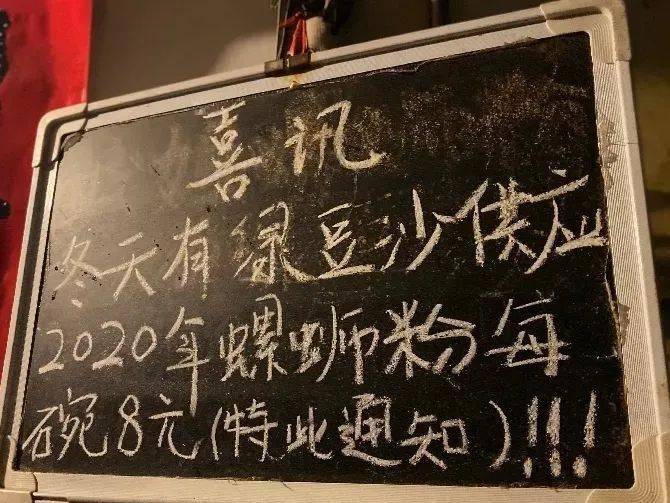 喜讯
冬天有绿豆沙供应
2020年螺蛳粉每
碗8元(特此通知)!!!